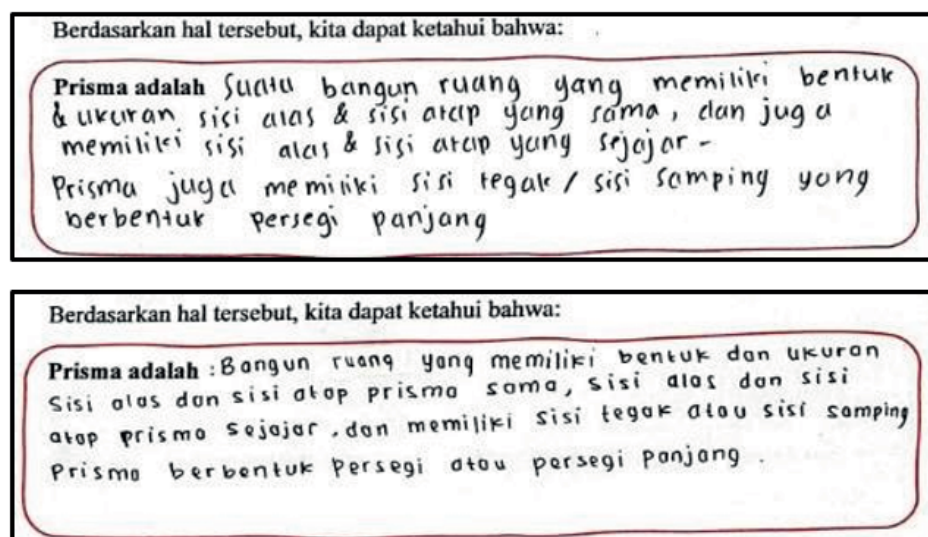 Berdasarkan hal tersebut, kita dapat ketahui bahwa:
Prisma adalah Suatu bangun ruang yang memiliki bentuk
& ukuran sisi alas & sisi atap yang sama, dan juga
memiliki sisi alas & sisi atap yang sejajar -
Prisma juga memiliki sisi tegak / sisi samping yang
berbentuk persegi panjang
Berdasarkan hal tersebut, kita dapat ketahui bahwa:
Prisma adalah : Bangun ruang yang memiliki bentuk dan ukuran
Sisi alas dan sisi atap prisma sama, sisi alas dan sisi
atap prisma sejajar, dan memiliki sisi tegak atau sisi samping
Prisma berbentuk persegi atau persegi panjang .